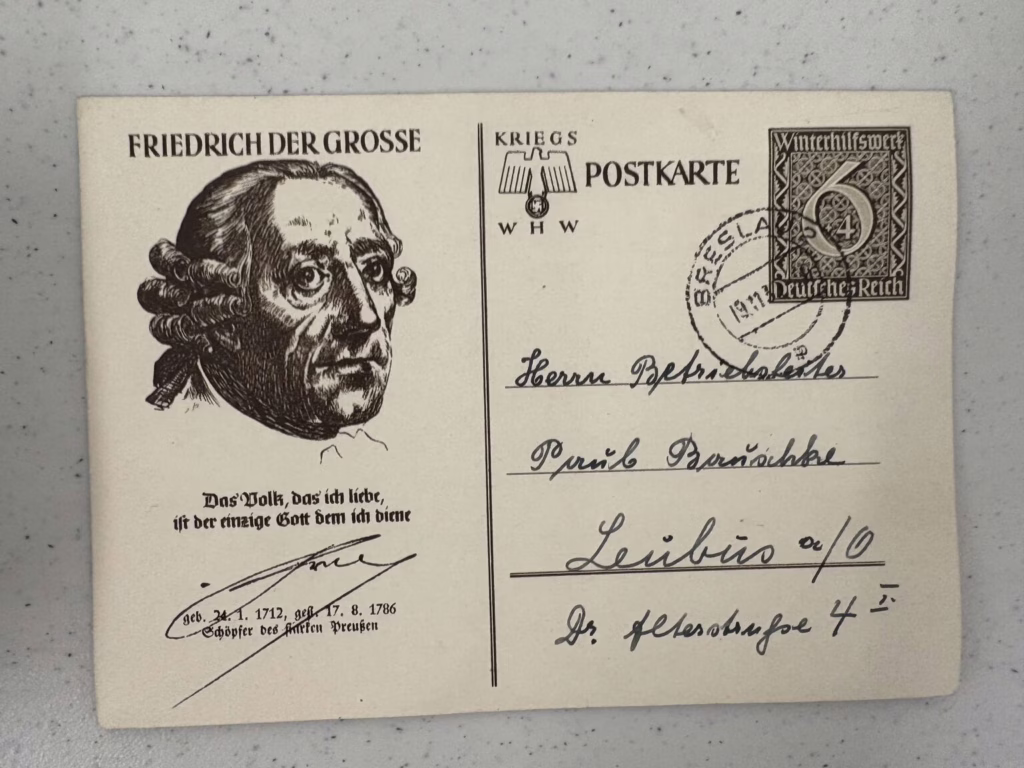 FRIEDRICH DER GROSSE
Das Volk, das ich liebe,
ist der einzige Gott dem ich diene
geb. 24. 1. 1712, gest. 17. 8. 1786
Schöpfer des starken Preußen
KRIEGS
POSTKARTE
W H W
Winterhilfswerk
6
4
Deutsches Reich
BRESLAU
19.11.
Herrn Betriebsleiter
Paul Bauschke
Leubus a/O
Dr. Alterstraße 4 I.